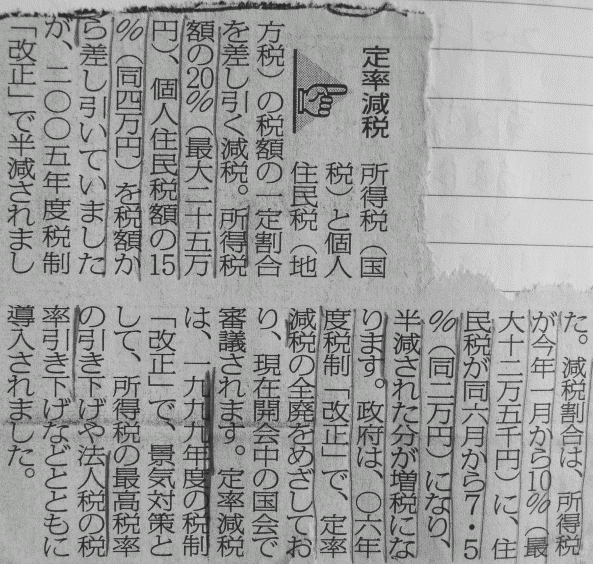 定率減税
所得税（国
税）と個人
住民税（地
方税）の税額の一定割合
を差し引く減税。所得税
額の20％（最大二十五万
円）、個人住民税額の15
％（同四万円）を税額か
ら差し引いていました
が、二〇〇五年度税制
「改正」で半減されまし
た。減税割合は、所得税
が今年一月から10％（最
大十二万五千円）に、住
民税が同六月から7・5
％（同二万円）になり、
半減された分が増税にな
ります。政府は、〇六年
度税制「改正」で、定率
減税の全廃をめざしてお
り、現在開会中の国会で
審議されます。定率減税
は、一九九九年度の税制
「改正」で、景気対策と
して、所得税の最高税率
の引き下げや法人税の税
率引き下げなどとともに
導入されました。